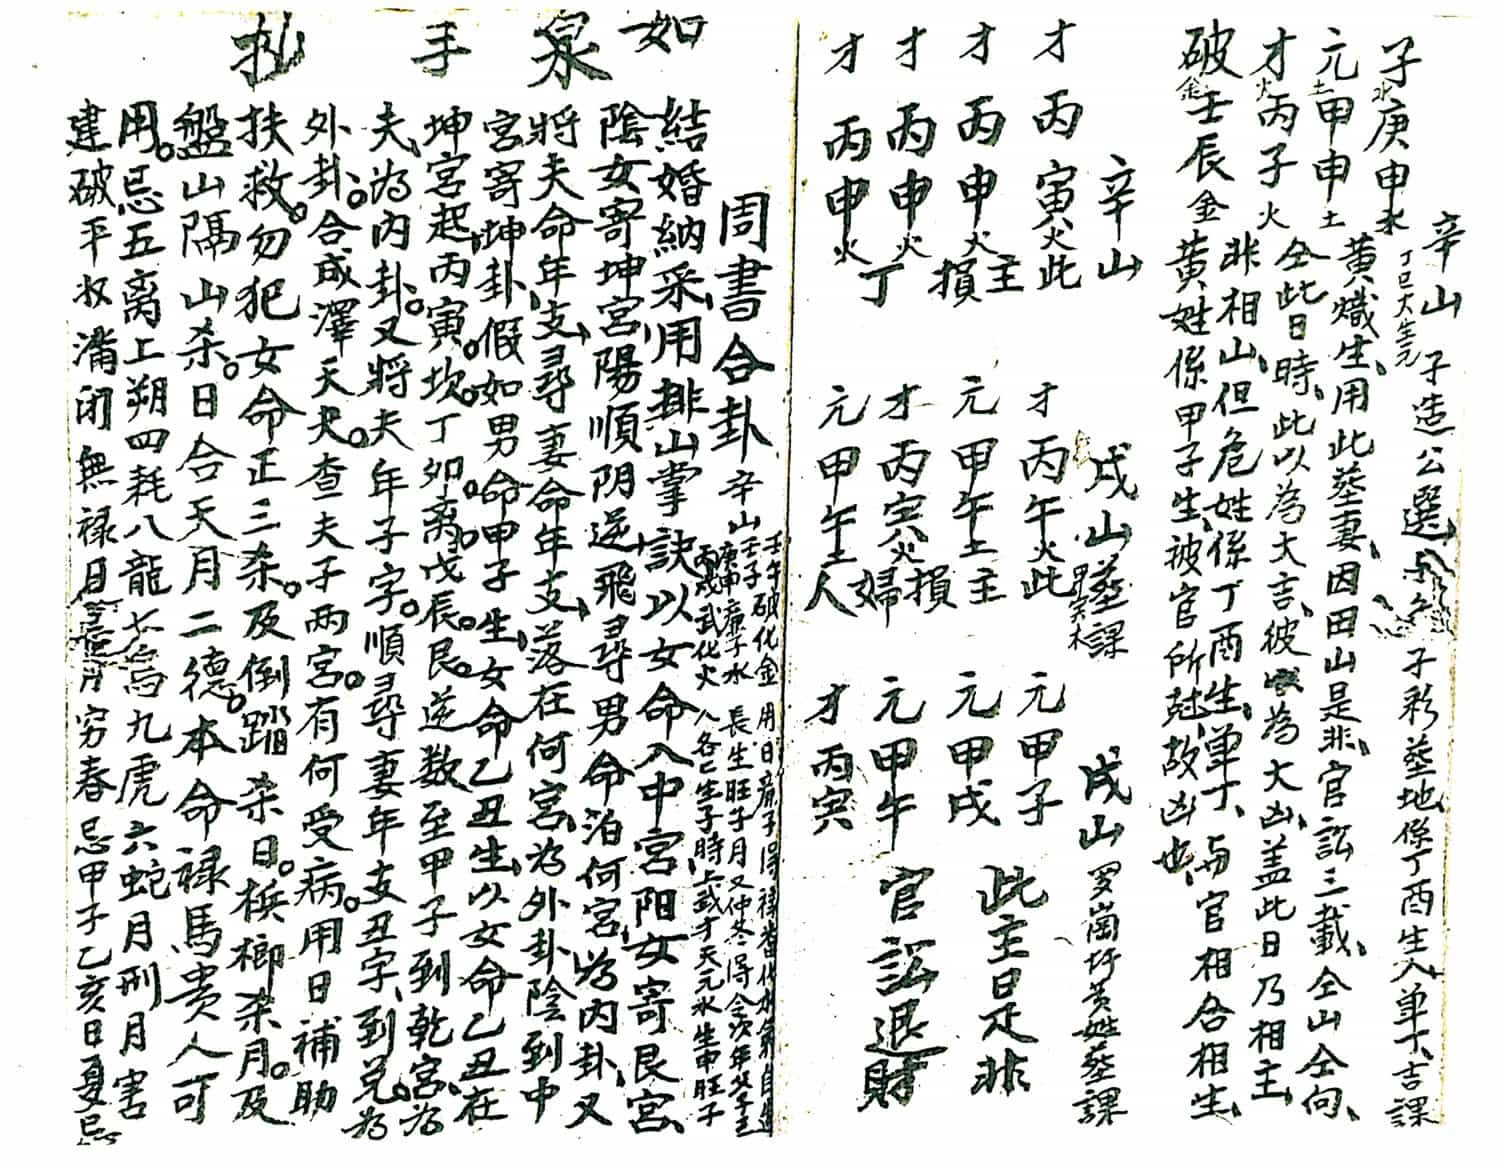 辛山 子造公選 子彩葬地係丁酉生人單丁、吉課
丁巳火生元
子水庚申水 黃熾生、用此葬妻、因田山是非、官訟三載、仝山仝向、
元土甲申土 仝此日時、此以為大吉、彼以為大凶、蓋此日乃相主、
才火丙子火 非相山、但危姓係丁酉生、單丁、与官相合相生、
破金壬辰金 黃姓係甲子生、被官所尅、故凶也、
辛山
才 丙寅火此
才 丙申火主
才 丙申火損
才 丙申火丁
戌山葬課
才 丙午火此
元 甲午土主
才 丙寅火損婦
元 甲午土人
戌山 罗崗圩黃姓葬課
元甲子 此主日是非
元甲戌
元甲午 官訟退財
才丙寅
如泉手抄
周書合卦
辛山 壬午破化金
壬子
庚申廉子水
丙戌武化火
結婚納采、用排山掌訣以女命入中宮阳女寄艮宮、
陰女寄坤宮、陽順阴逆、飛尋男命泊何宮、為內卦、又
將夫命年支、尋妻命年支、落在何宮、為外卦、陰到中
宮寄坤卦、假如男命甲子生、女命乙丑生、以女命乙丑在
坤宮起、丙寅。坎。丁卯。离。戊辰。艮。逆数至甲子到乾宮、為
夫、為內卦。又將夫年子字。順尋妻年支丑字、到兑。為
外卦。合成澤天夬。查夫子兩宮。有何受病。用日補助
扶救。勿犯女命正三杀。及倒踏杀日。梹榔杀月。及
盤山隔山杀。日合天月二德。本命祿馬贵人可
用。忌五离上朔四耗八龍七鳥九虎六蛇月刑月害
建破平收滿闭無祿日 月穷春忌甲子乙亥日夏忌